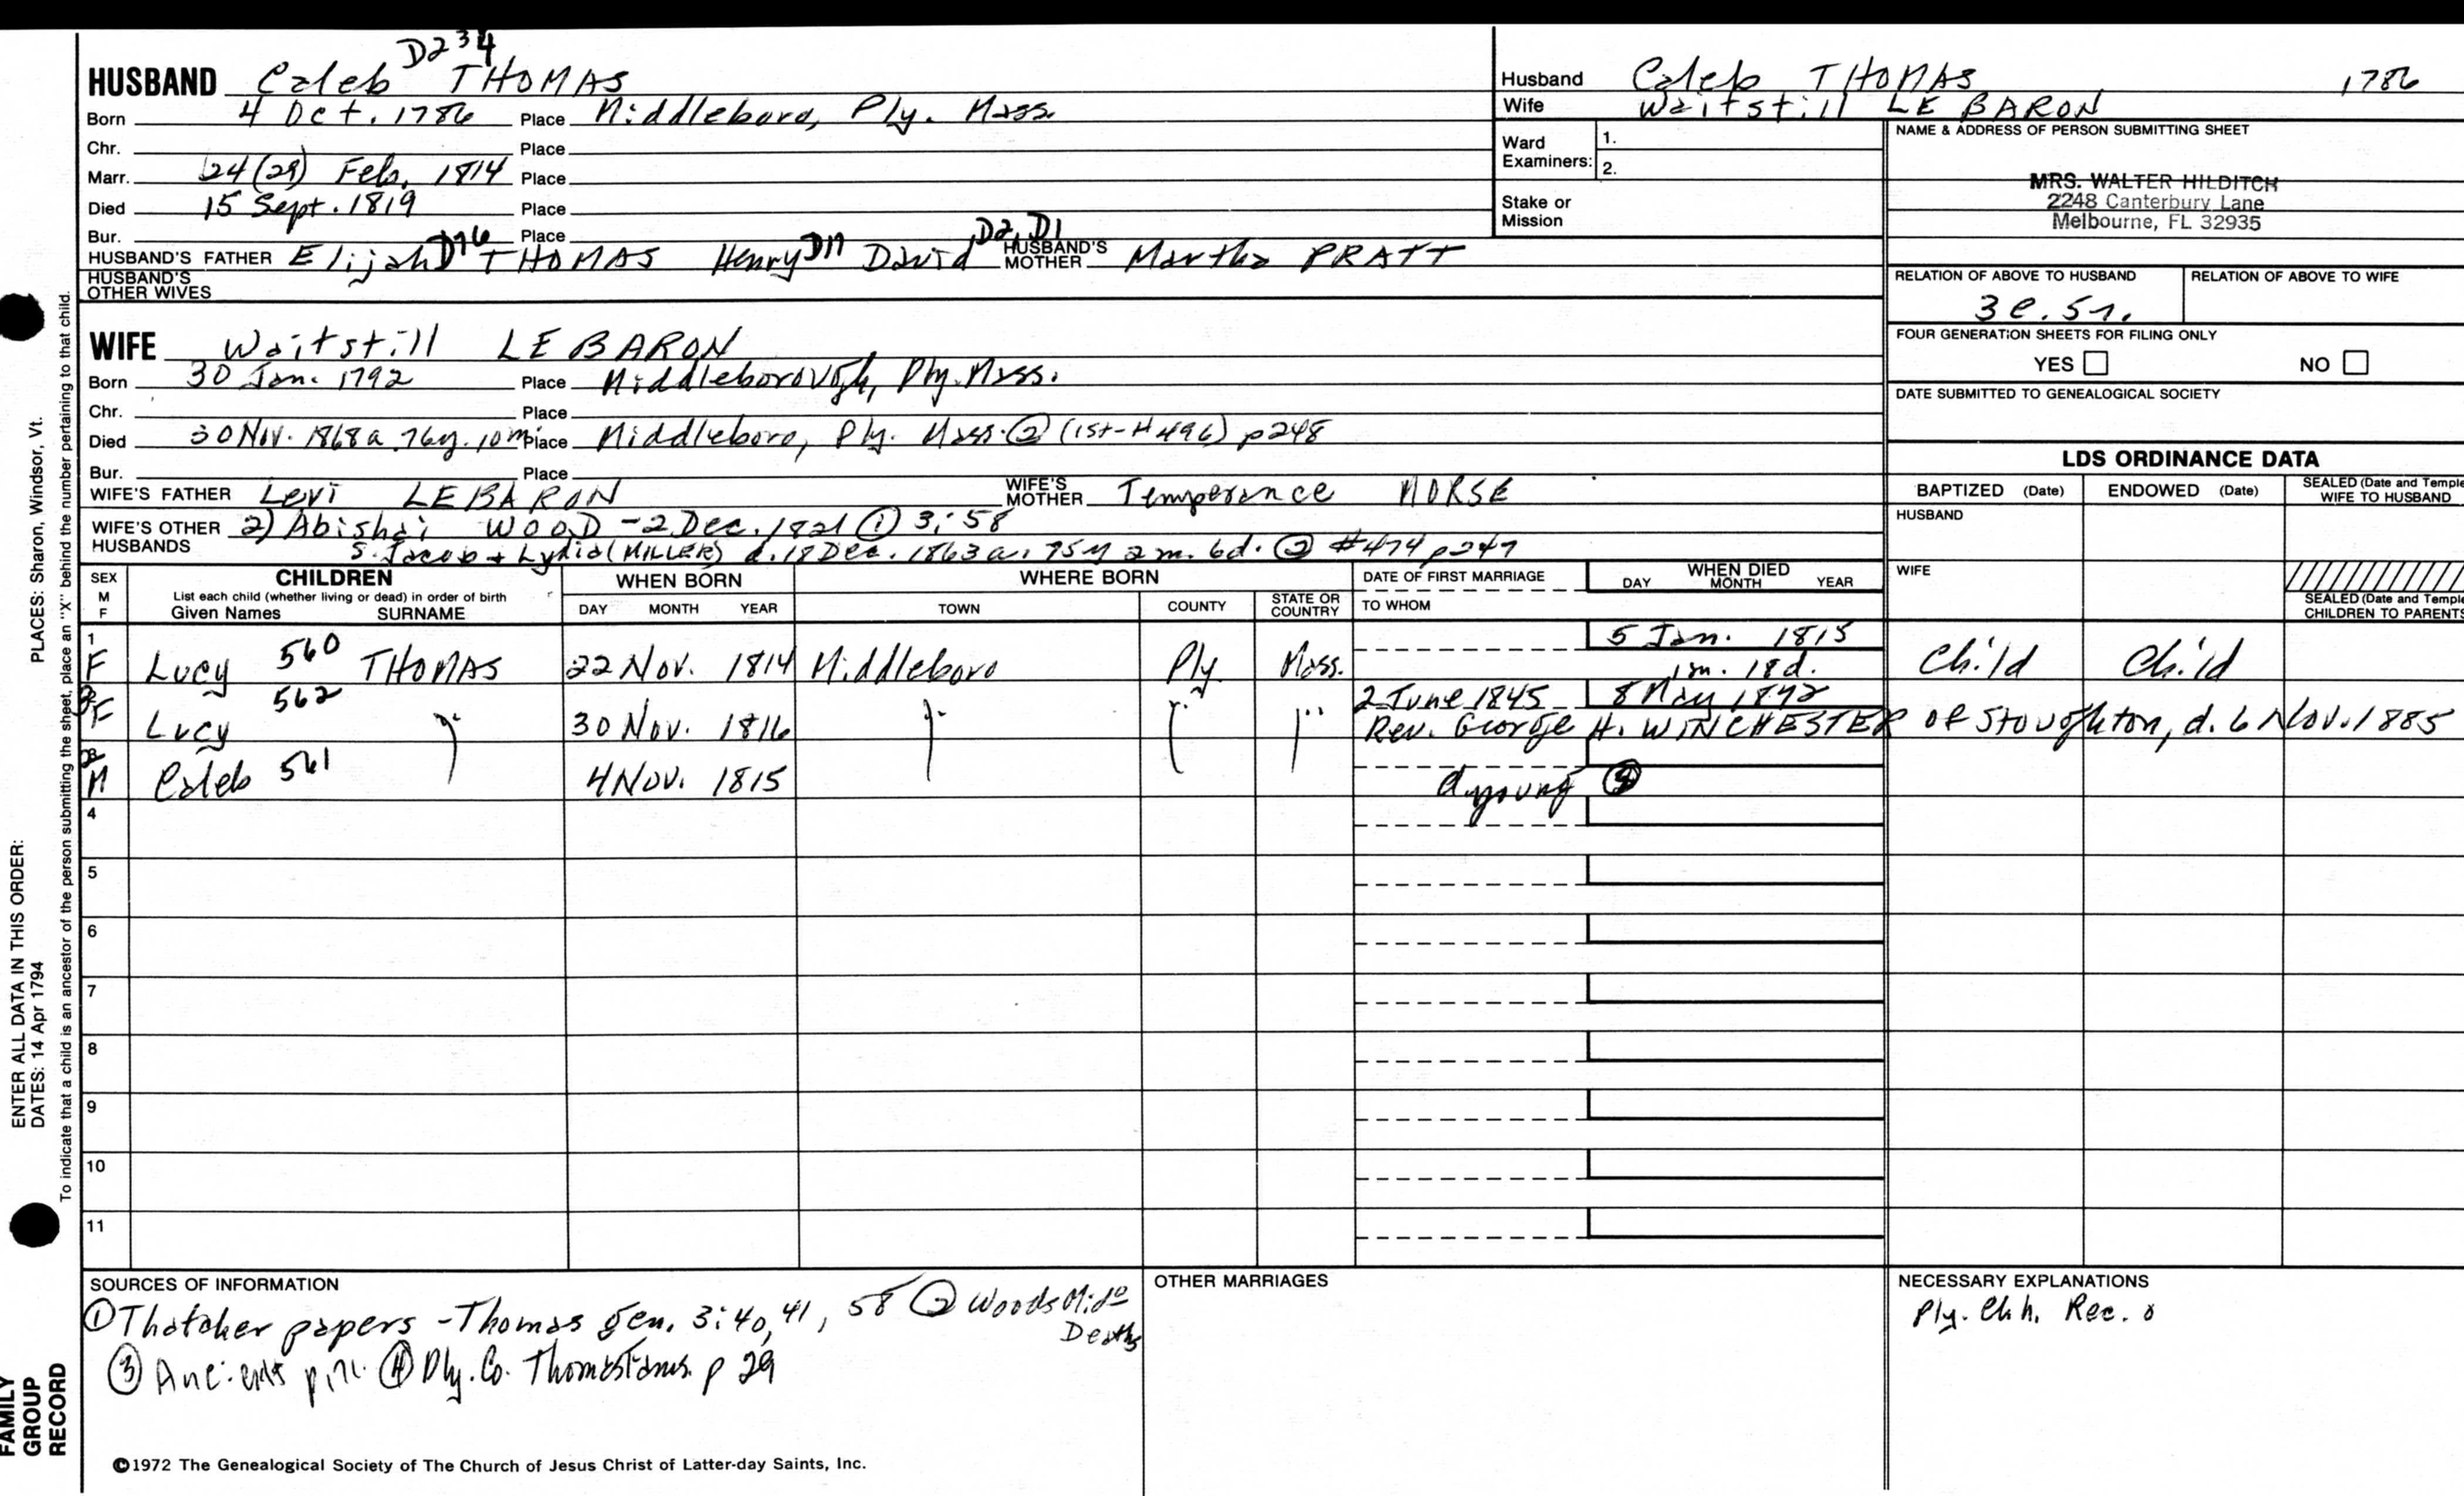 D234
HUSBAND Caleb THOMAS
Born 4 Oct. 1786 Place Middleboro, Ply. Mass.
Chr. Place
Marr. 24 (29) Feb. 1814 Place
Died 15 Sept. 1819 Place
Bur. Place
HUSBAND'S FATHER Elijah D76 THOMAS Henry D17 David D2, D1 HUSBAND'S MOTHER Martha PRATT
HUSBAND'S OTHER WIVES
Husband Caleb THOMAS 1786
Wife Waitstill LE BARON
Ward Examiners: 1.
2.
Stake or Mission
NAME & ADDRESS OF PERSON SUBMITTING SHEET
MRS. WALTER HILDITCH
2248 Canterbury Lane
Melbourne, FL 32935
RELATION OF ABOVE TO HUSBAND RELATION OF ABOVE TO WIFE
3c.5r.
FOUR GENERATION SHEETS FOR FILING ONLY
YES NO
DATE SUBMITTED TO GENEALOGICAL SOCIETY
WIFE Waitstill LE BARON
Born 30 Jan. 1792 Place Middleborough, Ply. Mass.
Chr. Place
Died 30 Nov. 1868 a. 76y. 10m Place Middleboro, Ply. Mass. ② (1st-#496) p248
Bur. Place
WIFE'S FATHER Levi LEBARON WIFE'S MOTHER Temperance MORSE
WIFE'S OTHER HUSBANDS 2) Abishai WOOD - 2 Dec. 1821 ① 3:58
S. Jacob + Lydia (MILLER) d. 18 Dec. 1863 a. 75y 2m. 6d. ② #474 p247
LDS ORDINANCE DATA
BAPTIZED (Date) ENDOWED (Date) SEALED (Date and Temple WIFE TO HUSBAND
HUSBAND
WIFE
SEALED (Date and Temple CHILDREN TO PARENTS
SEX M F CHILDREN List each child (whether living or dead) in order of birth Given Names SURNAME
WHEN BORN DAY MONTH YEAR
WHERE BORN TOWN COUNTY STATE OR COUNTRY
DATE OF FIRST MARRIAGE TO WHOM
WHEN DIED DAY MONTH YEAR
1 F Lucy 560 THOMAS 22 Nov. 1814 Middleboro Ply Mass. 5 Jan. 1815 1m. 18d. Child Child
F Lucy 562 " 30 Nov. 1816 " " " 2 June 1845 8 May 1892
Rev. George H. WINCHESTER of Stoughton, d. 6 Nov. 1885
M Caleb 561 4 Nov. 1815 d. young ④
4
5
6
7
8
9
10
11
SOURCES OF INFORMATION
① Thatcher papers - Thomas gen. 3:40, 41, 58 ② Woods Mido Deaths
③ Ancients ④ Ply. Co. Thomas fams. p 29
OTHER MARRIAGES
NECESSARY EXPLANATIONS
Ply. Chh. Rec. o
©1972 The Genealogical Society of The Church of Jesus Christ of Latter-day Saints, Inc.
PLACES: Sharon, Windsor, Vt.
ENTER ALL DATA IN THIS ORDER:
DATES: 14 Apr 1794
To indicate that a child is an ancestor of the person submitting the sheet, place an "X" behind the number pertaining to that child.
FAMILY
GROUP
RECORD